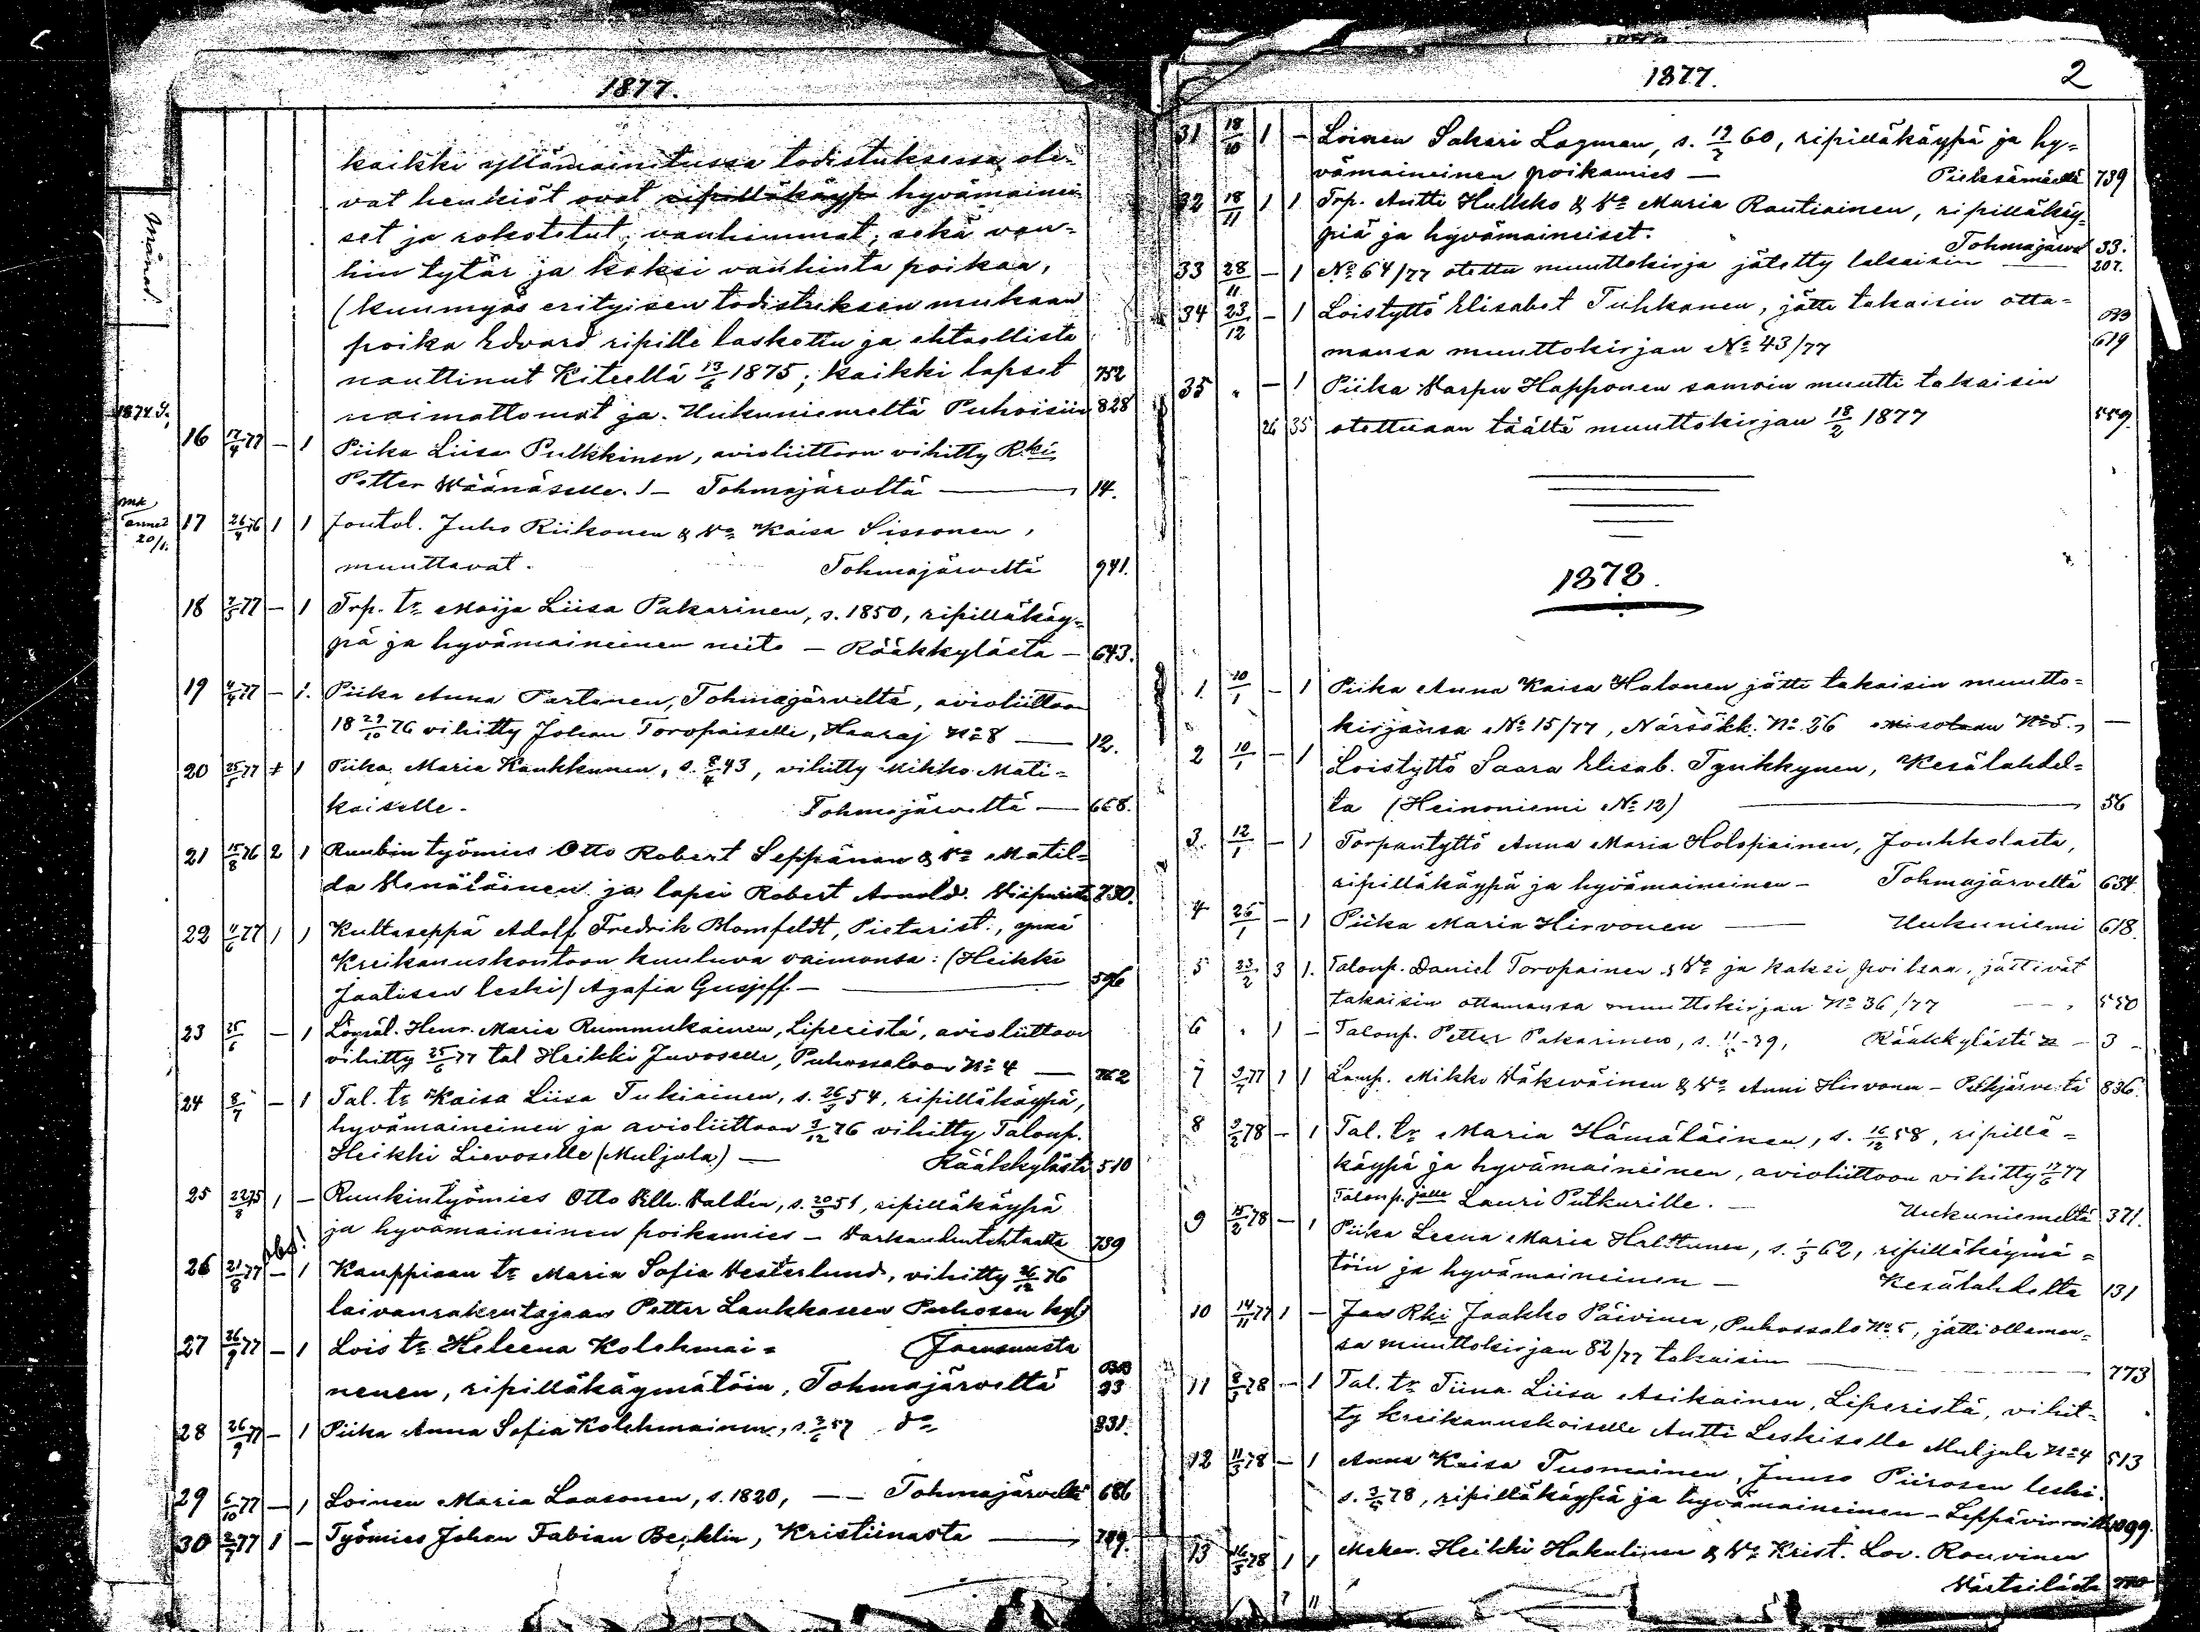 1877.
kaikki yllämainitussa todistuksessa ole-
vat henkiöt ovat ripilläkäyp hyvämainei-
set ja rokotetut, vanhimmat, sekä van-
hin tytär ja kaksi vanhinta poikaa,
(kuunmyös erityisen todistuksen mukaan
poika Edvard ripille laskettu ja ehtoollista
nauttinut Kiteellä 13/6 1875; kaikki lapset 752
naimattomat ja Uukuniemeltä Puhoisiin 828
Månad.
1874
16 17/4 77 - 1 Piika Liisa Pulkkinen, avioliittoon vihitty Rki
Petter Wäänäselle. 1- Tohmajärveltä — 14.
17 26/9 76 1 1 Joutol. Juho Riikonen & Vo Kaisa Sissonen,
muuttavat. Tohmajärveltä 941.
18 2/5 77 - 1 Trp. tr Maija Liisa Pakarinen, s. 1850, ripilläkäy-
pä ja hyvämaineinen neito - Rääkkylästä - 643.
19 4/4 77 - 1. Piika Anna Partanen, Tohmajärveltä, avioliittoon
18 29/10 76 vihitty Johan Toropaiselle, Haaraj No 8 — 12.
20 25/5 77 - 1 Piika Maria Kaukkunen, s. 8/4 43, vihitty Mikko Mati-
kaiselle. Tohmajärveltä — 668.
21 15/8 76 2 1 Ruukin työmies Otto Robert Seppänen & Vo Matil-
da Venäläinen ja lapsi Robert Arnold. Viipurista 730.
22 4/6 77 1 1 Kultaseppä Adolf Fredrik Blomfeldt, Pietarist., ynnä
Kreikanuskontoon kuuluva vaimonsa: (Heikki
Jaatisen leski) Agafia Gusjeff. — 596
23 25/6 - 1 Henr. Maria Rummukainen, Liperistä, avioliittoon
vihitty 25/6 77 tal Heikki Juvoselle, Puhossaloon No 4 — 762
24 8/7 - 1 Tal. tr Kaisa Liisa Tukiainen, s. 26/3 54, ripilläkäypä,
hyvämaineinen ja avioliittoon 3/12 76 vihitty Talonp.
Heikki Lievoselle (Muljula) — Rääkkylästä 510
25 22/8 75 1 - Ruukintyömies Otto Vilh. Valdén, s. 20/3 51, ripilläkäypä
ja hyvämaineinen poikamies - Varkaudentehtaalta 739
obs!
26 21/8 77 - 1 Kauppiaan tr Maria Sofia Vesterlund, vihitty 26/12 76
laivanrakentajaan Petter Laukkaseen Puhosen kyl)
27 26/9 77 - 1 Lois tr Heleena Kolehmai- Joensuusta
nenen, ripilläkäymätöin, Tohmajärveltä 23
28 26/9 77 - 1 Piika Anna Sofia Kolehmainen, s. 2/6 57 do 331.
29 6/10 77 - 1 Loinen Maria Laasonen, s. 1820, — Tohmajärveltä 686
30 2/7 77 1 - Työmies Johan Fabian Becklin, Kristiinasta — 789.
1877. 2
31 18/10 1 - Loinen Sakari Lagman, s. 19/7 60, ripilläkäypä ja hy-
vämaineinen poikamies — Pieksämäeltä 739
32 18/11 1 1 Trp. Antti Hulkko & Vo Maria Rautiainen, ripilläkäy-
piä ja hyvämaineiset. Tohmajärvel 33.
33 28/11 - 1 No 64/77 otettu muuttokirja jätetty takaisin — 207.
34 23/12 - 1 Loistyttö Elisabet Tuhkanen, jätti takaisin otta-
mansa muuttokirjan No 43/77 619
35 " - 1 Piika Varpu Happonen samoin muutti takaisin
26 35 otettuaan täältä muuttokirjan 18/2 1877 559.
1878.
1. 10/1 - 1 Piika Anna Kaisa Halonen jätti takaisin muutto-
kirjansa No 15/77, Närsäkk. No 26 No 5., —
2 10/1 - 1 Loistyttö Saara Elisab. Tynkkynen, Kesälahdel-
ta (Heinoniemi No 12) — 56
3. 12/1 - 1 Torpantyttö Anna Maria Holopainen, Jouhkolasta,
ripilläkäypä ja hyvämaineinen - Tohmajärveltä 634.
4 25/1 - 1 Piika Maria Hirvonen — Uukuniemi 618.
5 23/2 3 1. Talonp. Daniel Toropainen & Vo ja kaksi poikaa, jättivät
takaisin ottamansa muuttokirjan No 36/77 550
6 " 1 - Talonp. Petter Pakarinen, s. 39, Rääkkylästä - 3 -
7 77 1 1 Lamp. Mikko Väkeväinen & Vo Anni Hirvonen - Pälkjärveltä 836.
8 2/2 78 - 1 Tal. tr Maria Hämäläinen, s. 16/12 58, ripillä-
käypä ja hyvämaineinen, avioliittoon vihitty 17/6 77
Talonp. Lauri Putkurille. - Uukuniemeltä 371.
9 15/2 78 - 1 Piika Leena Maria Halttunen, s. 1/3 62, ripilläkäymä-
töin ja hyvämaineinen - Kesälahdelta 131
10 14/11 77 1 - Rki Jaakko Päivinen, Puhossalo No 5, jätti ottaman-
sa muuttokirjan 82/77 takaisin — 773
11 8/3 78 - 1 Tal. tr Tiina Liisa Asikainen, Liperistä, vihit-
ty kreikanuskoiselle Antti Leskiselle Muljula No 4 513
12 11/3 78 - 1 Anna Kaisa Tuomainen, Juuso Piirosen leski.
s. 78, ripilläkäypä ja hyvämaineinen - Leppävirroilta 1099.
13 16/3 78 1 1 Heikki Hakulinen & Vo Krist. Lov. Rouvinen
Värtsilästä
7 11